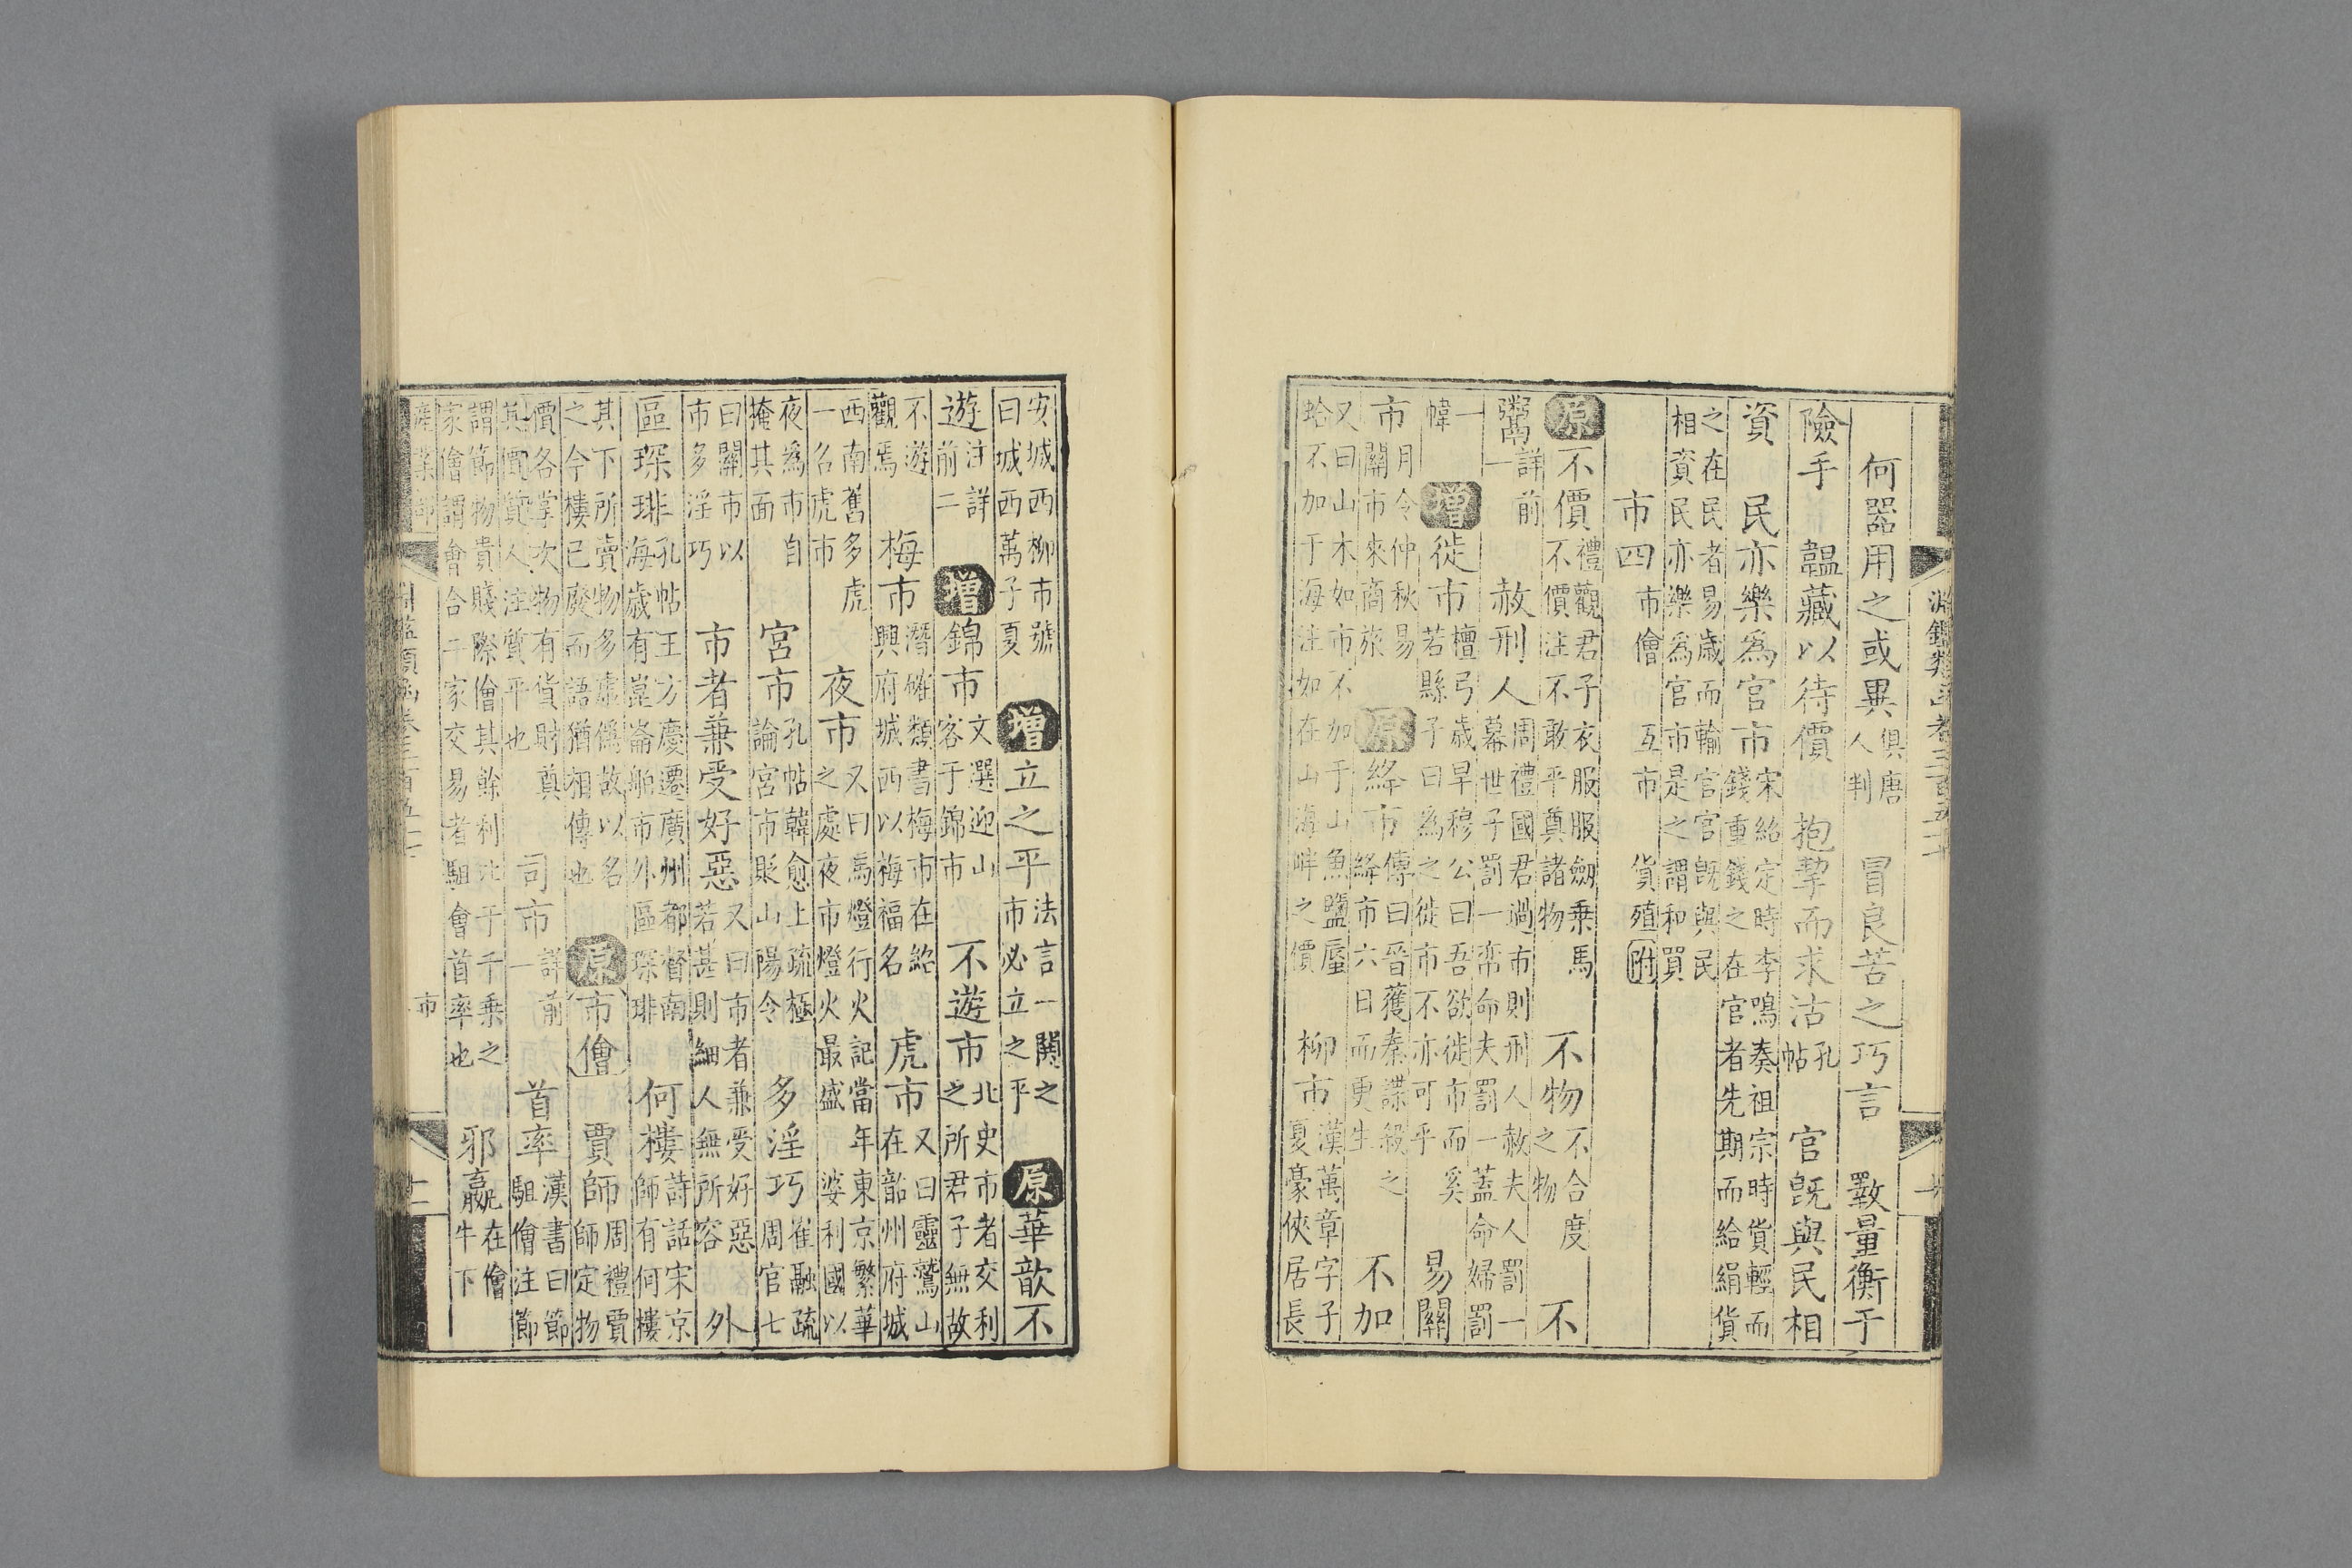 淵鑑類函卷三百五十
何器用之或異俱唐人判 冒良苦之巧言 斁量衡于
險手 韞藏以待價 抱摯而求沽孔帖 官旣與民相
資 民亦樂爲官市宋紹定時李鳴奏祖宗時貨輕而錢重錢之在官者先期而給絹貨
之在民者易歲而輸官官旣與民相資民亦樂爲官市是之謂和買
市四市儈 互市 貨殖附
原不價禮觀君子衣服服劒乗馬不價注不敢平奠諸物 不物不合度之物 不
粥詳前一 赦刑人周禮國君過市則刑人赦夫人罰一幕世子罰一帟命夫罰一蓋命婦罰
一幃 增徙市檀弓歲旱穆公曰吾欲徙市而奚若縣子曰爲之徙市不亦可乎 易關
市月令仲秋易關市來商旅 原絳市傳曰晉獲秦諜殺之絳市六日而更生 不加
又曰山木如市不加于山魚鹽蜃蛤不加于海注如在山海畔之價 柳市漢萬章字子夏豪俠居長
安城西柳市號曰城西萬子夏 增立之平法言一闤之市必立之平 原華歆不
遊注詳前二 增錦市文選迎山客于錦市 不遊市北史市者交利之所君子無故
不遊觀焉 梅市潛確類書梅市在紹興府城西以梅福名 虎市又曰靈鷲山在韶州府城
西南舊多虎一名虎市 夜市又曰馬燈行火記當年東京繁華之處夜市燈火最盛婆利國以
夜爲市自掩其面 宮市孔帖韓愈上疏極論宮市貶山陽令 多淫巧崔融疏周官七
曰關市以市多淫巧 市者兼受好惡又曰市者兼受好惡若甚則細人無所容 外
區琛琲孔帖王方慶遷廣州都督南海歲有崑崙舶市外區琛琲 何樓詩話宋京師有何樓
其下所賣物多虛僞故以名之今樓已廢而語猶相傳也 原市儈 賈師周禮賈師定物
價各掌次物有貨財奠其價奠人注質平也 司市詳前一 首率漢書曰節駔儈注節
謂節物貴賤際儈其餘利比于千乗之家儈謂會合二家交易者駔會首率也 邪嬴在儈牛下
市